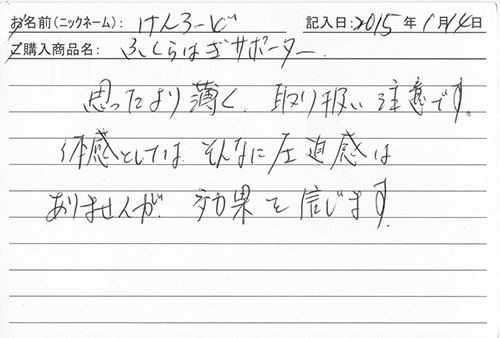 お名前(ニックネーム): けんろーど 記入日:2015年1月14日
ご購入商品名: ふくらはぎサポーター.
思ったより薄く、取り扱い注意です。
体感としては、そんなに圧迫感は
ありませんが、効果を信じます。